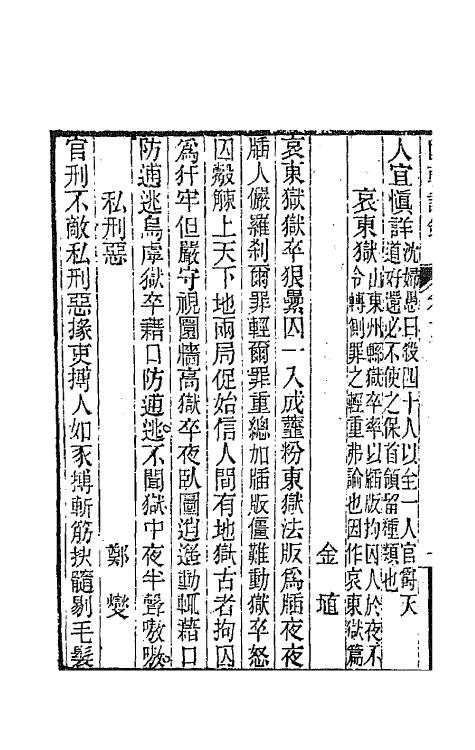 人宜愼詳沈婦愚曰殺四十人以全一人官爵天
道好還必不使之保首領留種類也
哀東獄山東州縣獄卒率以牐版拘囚人於夜不
令轉側罪之輕重弗論也因作哀東獄篇
金埴
哀東獄獄卒狠纍囚一入成虀粉東獄法版爲牐夜夜
牐人儼羅刹爾罪輕爾罪重總加牐版僵難動獄卒怒
囚觳觫上天下地兩局促始信人間有地獄古者拘囚
爲犴牢但嚴守視圜牆高獄卒夜臥圖逍遙動輒藉口
防逋逃烏虖獄卒藉口防逋逃不聞獄中夜半聲嗷嗷
私刑惡
鄭燮
官刑不敵私刑惡掾吏搏人如豕搏斬筋抉髓剔毛髮